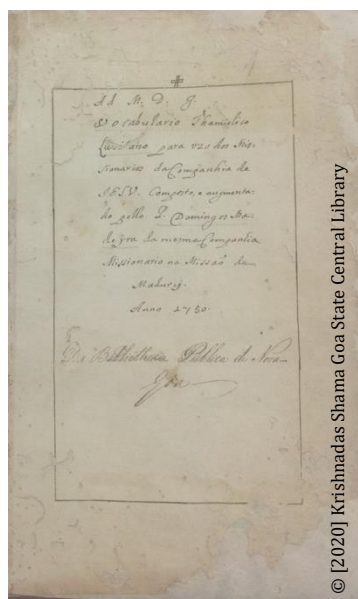 Ad M. D. G.
Vocabulario Thamulico
Lusitano para uzo dos Mis-
sionarios da Companhia de
IESV. Composto, e augmenta-
do pello P. Domingos Ma-
deyra da mesma Companhia
Missionario na Missaõ de
Madurej.
Anno 1750.
Da Bibliotheca Publica de Nova-
Goa
© [2020] Krishnadas Shama Goa State Central Library